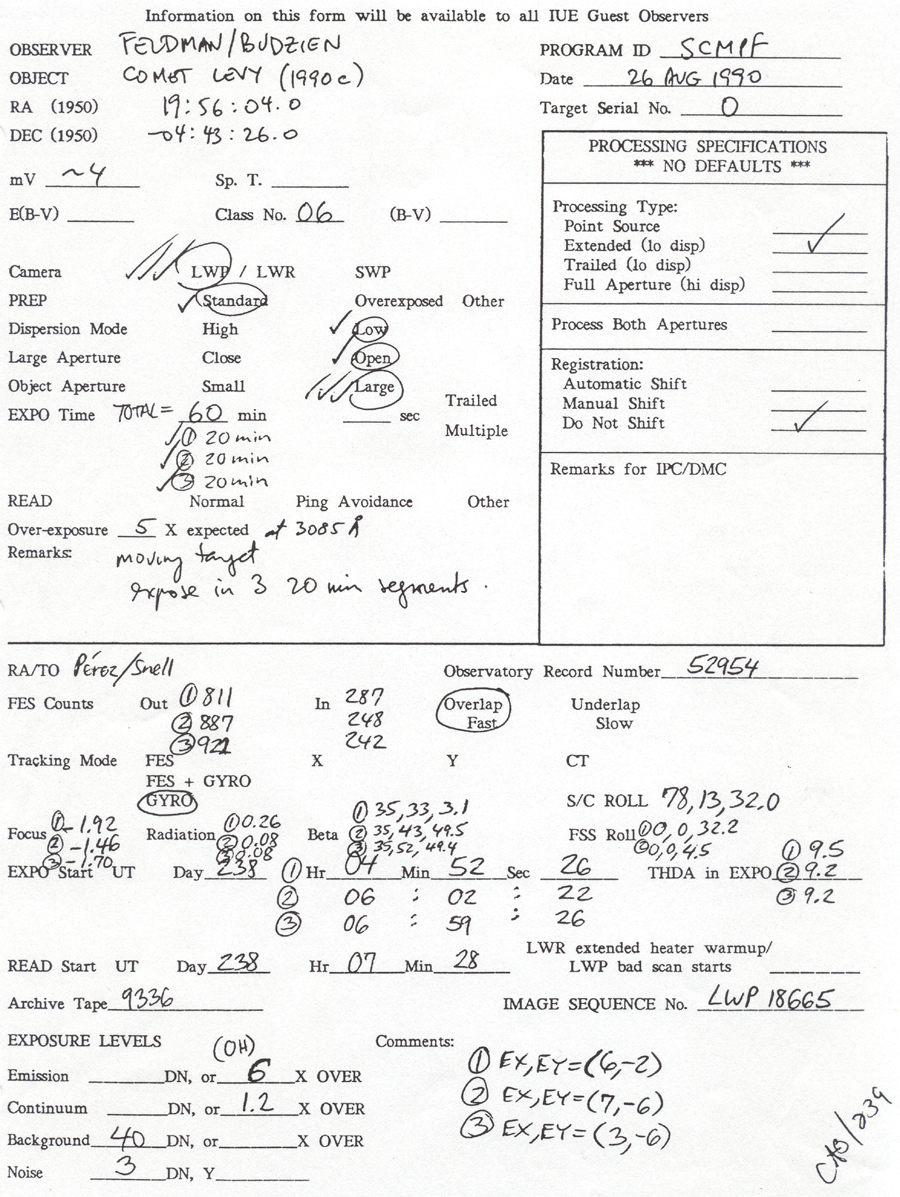 Information on this form will be available to all IUE Guest Observers
OBSERVER FELDMAN/BUDZIEN
OBJECT COMET LEVY (1990c)
RA (1950) 19:56:04.0
DEC (1950) -04:43:26.0
PROGRAM ID SCMPF
Date 26 AUG 1990
Target Serial No. 0
mV ~4 Sp. T.
E(B-V) Class No. 06 (B-V)
PROCESSING SPECIFICATIONS
*** NO DEFAULTS ***
Processing Type:
Point Source
Extended (lo disp) ✓
Trailed (lo disp)
Full Aperture (hi disp)
Process Both Apertures
Registration:
Automatic Shift
Manual Shift
Do Not Shift ✓
Remarks for IPC/DMC
Camera LWP / LWR SWP
PREP Standard Overexposed Other
Dispersion Mode High Low
Large Aperture Close Open
Object Aperture Small Large
EXPO Time TOTAL= 60 min sec
Trailed
Multiple
① 20 min
② 20 min
③ 20 min
READ Normal Ping Avoidance Other
Over-exposure 5 X expected at 3085 Å
Remarks: moving target
expose in 3 20 min segments.
RA/TO Pérez/Snell Observatory Record Number 52954
FES Counts Out ① 811 In 287 Overlap Underlap
② 887 248 Fast Slow
③ 921 242
Tracking Mode FES X Y CT
FES + GYRO
GYRO S/C ROLL 78,13,32.0
Focus ① -1.92 Radiation ① 0.26 Beta ① 35,33,3.1 FSS Roll ① 0,0,32.2
② -1.46 ② 0.08 ② 35,43,49.5 ② 0,0,4.5
③ -1.70 ③ 0.08 ③ 35,52,49.4
EXPO Start UT Day 238 ① Hr 04 Min 52 Sec 26 THDA in EXPO ① 9.5
② 06 : 02 : 22 ② 9.2
③ 06 : 59 : 26 ③ 9.2
READ Start UT Day 238 Hr 07 Min 28
LWR extended heater warmup/
LWP bad scan starts
Archive Tape 9336 IMAGE SEQUENCE No. LWP 18665
EXPOSURE LEVELS (OH)
Emission DN, or 6 X OVER
Continuum DN, or 1.2 X OVER
Background 40 DN, or X OVER
Noise 3 DN, Y
Comments:
① EX,EY=(6,-2)
② EX,EY=(7,-6)
③ EX,EY=(3,-6)